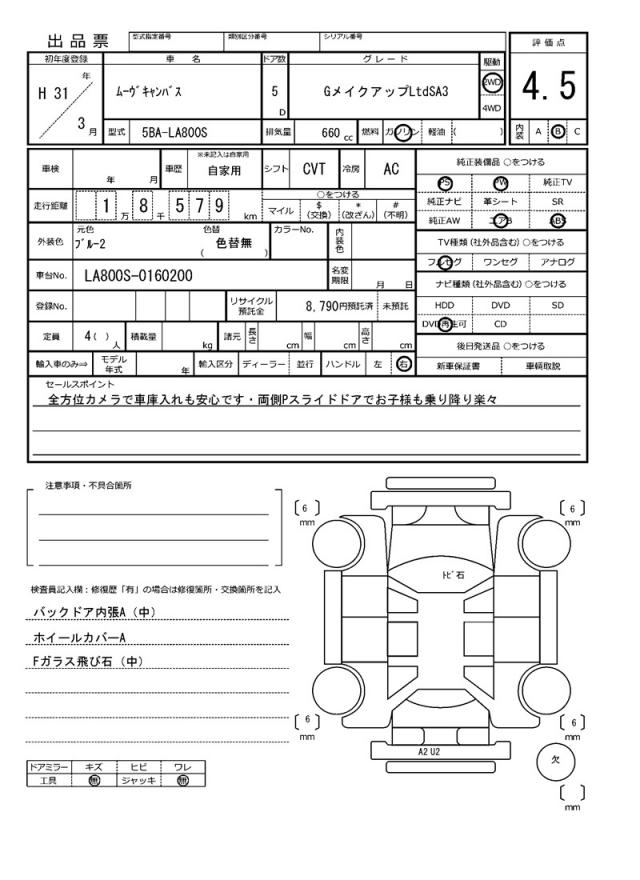 出品票 型式指定番号 類別区分番号 シリアル番号 評価点
初年度登録 車名 ドア数 グレード 駆動
H 31 年 3 月 ムーヴキャンバス 5 D GメイクアップLtdSA3 2WD 4WD 4.5
型式 5BA-LA800S 排気量 660 cc 燃料 ガソリン 軽油 ( ) 内装 A B C
車検 年 月 車歴 ※未記入は自家用 自家用 シフト CVT 冷房 AC 純正装備品 ○をつける
PS PW 純正TV
走行距離 1 万 8 千 5 7 9 km ○をつける 純正ナビ 革シート SR
マイル $(交換) *(改ざん) #(不明) 純正AW エアB ABS
外装色 元色 ブルー2 色替 色替無 ( ) カラーNo. 内装色 TV種類 (社外品含む) ○をつける
フルセグ ワンセグ アナログ
車台No. LA800S-0160200 名変期限 月 日 ナビ種類 (社外品含む) ○をつける
登録No. リサイクル預託金 8,790円預託済 未預託 HDD DVD SD
DVD再生可 CD
定員 4 ( ) 人 積載量 kg 諸元 長さ cm 幅 cm 高さ cm 後日発送品 ○をつける
輸入車のみ⇒ モデル年式 年 輸入区分 ディーラー 並行 ハンドル 左 右 新車保証書 車輌取説
セールスポイント
全方位カメラで車庫入れも安心です・両側Pスライドドアでお子様も乗り降り楽々
注意事項・不具合箇所
6 mm 6 mm
トビ石
検査員記入欄：修復歴「有」の場合は修復箇所・交換箇所を記入
バックドア内張A（中）
ホイールカバーA
Fガラス飛び石（中）
6 mm 6 mm
A2 U2
欠
ドアミラー キズ ヒビ ワレ
工具 無 ジャッキ 無
mm